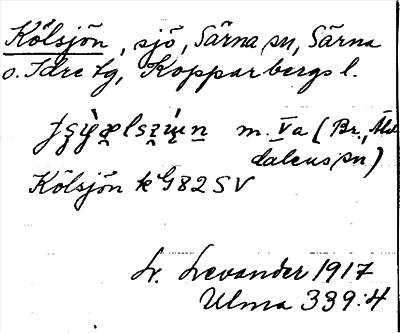 Kölsjön, sjö, Särna sn, Särna
o. Idre tg, Kopparbergs l.
m. Va (Br., Älv
dalens sn)
Kölsjön k G82 SV
Lr. Levander 1917
Ulma 339:4